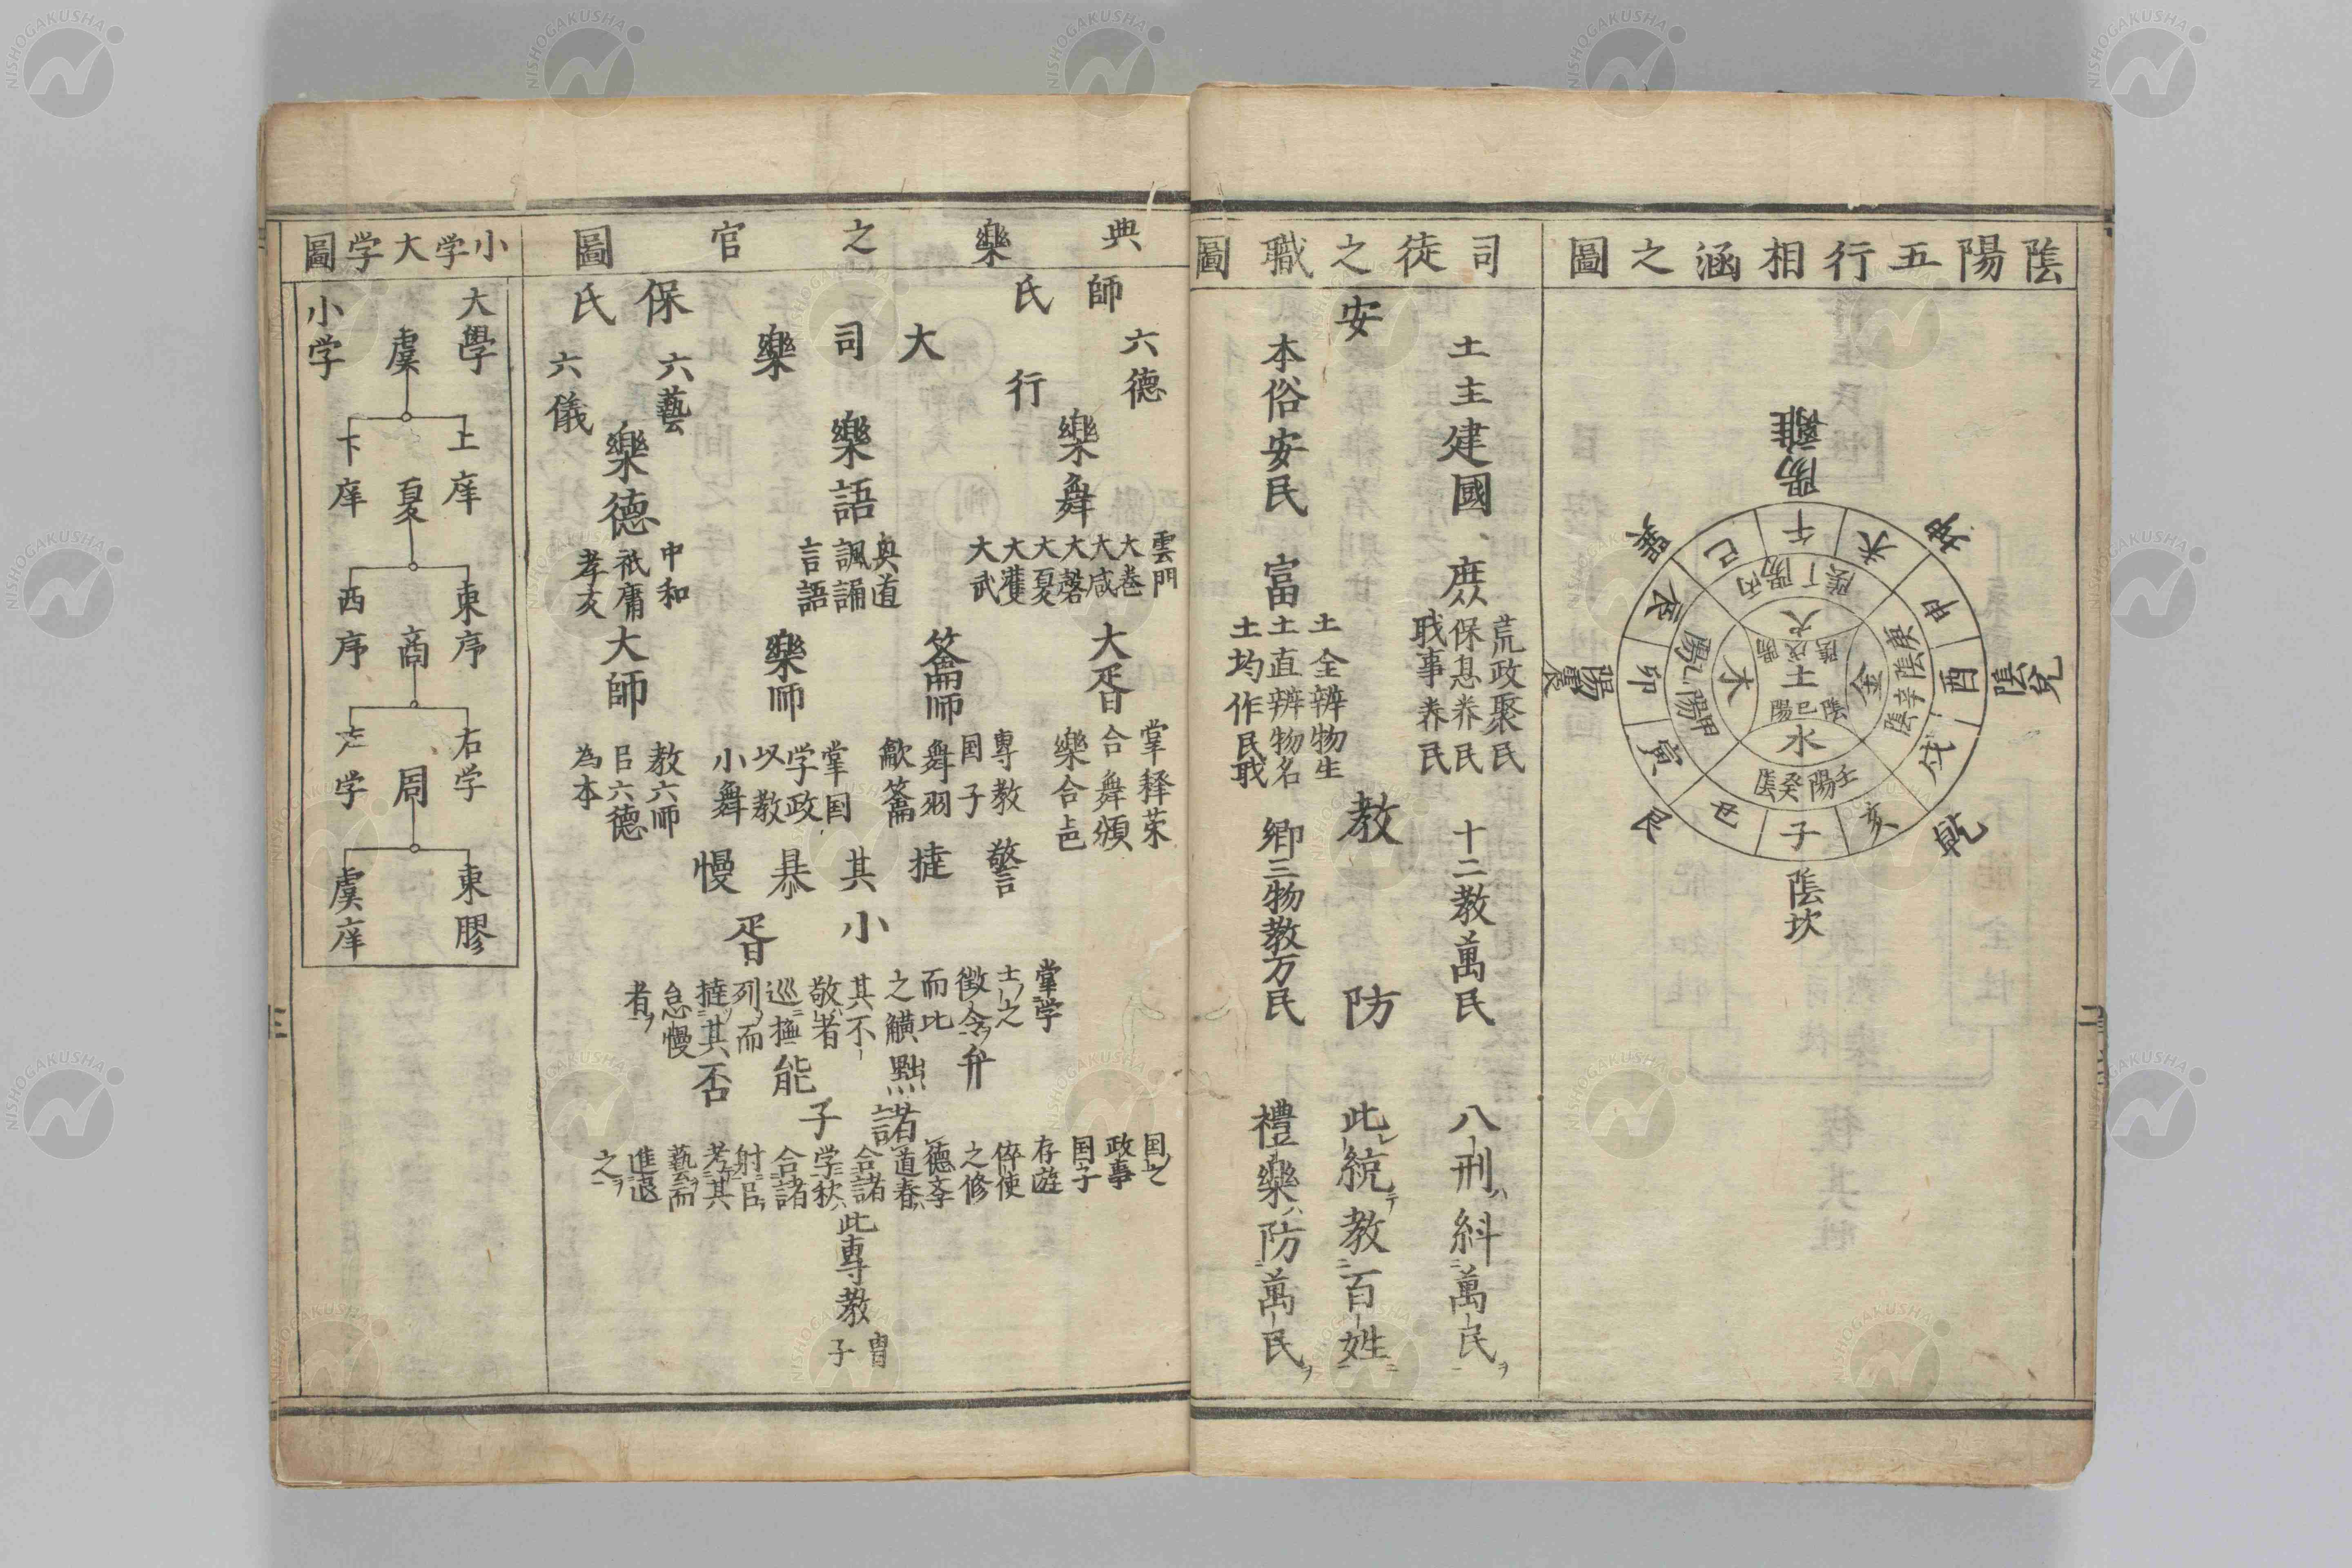 陰陽五行相涵之圖
離
陽
坤
兌
陰
乾
陰
坎
艮
震
陽
巽
午
未
申
酉
戌
亥
子
丑
寅
卯
辰
巳
丙陽丁陰
庚陰辛陰
壬陽癸陰
甲陽乙陽
火
金
水
木
陽戊陰
土
陽巳陰
司徒之職圖
安
土主建國
庶
荒政聚民
保息养民
耺事养民
本俗安民
富
土全辨物生
土直辨物名
土均作民耺
教
十二教萬民
鄉三物教万民
防
八刑ハ糾ニ萬民ヲ
此統テ教ニ百姓
禮樂ハ防ニ萬民ヲ
典樂之官圖
師氏
六德
行
大司樂
保氏
六藝
六儀
樂舞
雲門
大卷
大咸
大磬
大夏
大濩
大武
樂語
興道
諷誦
言語
樂德
中和
祇庸
孝友
大胥
掌釋菜
合舞頒
樂合色
籥師
專教
国子
舞羽
龡籥
樂師
掌国
学政
以教
小舞
大師
教六師
㠯六德
為本
警
撻
其
㳟
慢
小胥
掌学
士之
徵令
而比
之觵
其不
敬者
巡撫
列而
撻其
怠慢
者
弁
點
能
否
諸子
国之
政事
国子
存遊
倅使
之修
德孝
道春
合諸
学秋
合諸
射㠯
考其
藝而
進退
之
此專教
冑子
小学大学圖
大學
虞
小学
上庠
下庠
夏
東序
西序
商
右学
左学
周
東膠
虞庠
三
二
NISHOGAKUSHA